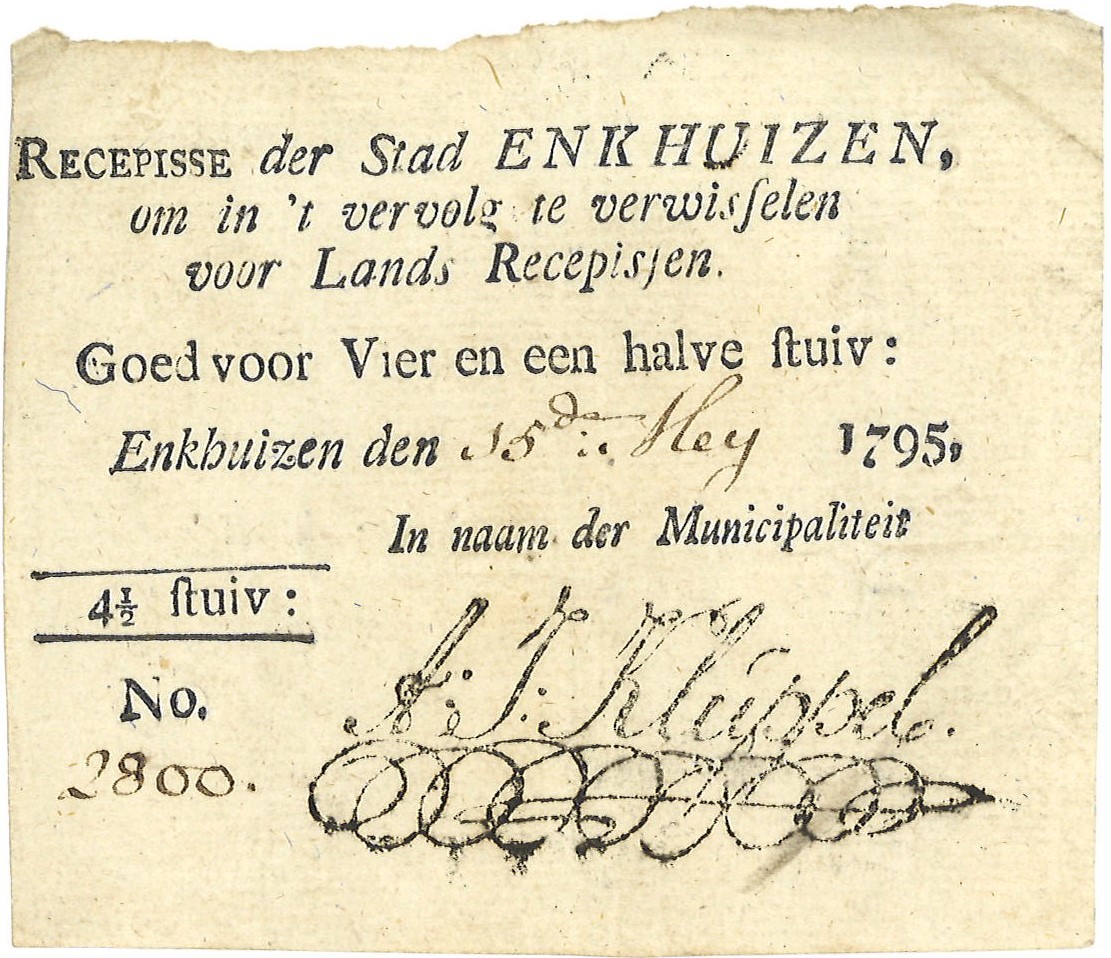 RECEPISSE der Stad ENKHUIZEN,
om in 't vervolg te verwisſelen
voor Lands Recepisſen.
Goed voor Vier en een halve ſtuiv:
Enkhuizen den 15de:: Mey 1795.
In naam der Municipaliteit
4½ ſtuiv:
A: J: Kluppel.
No.
2800.